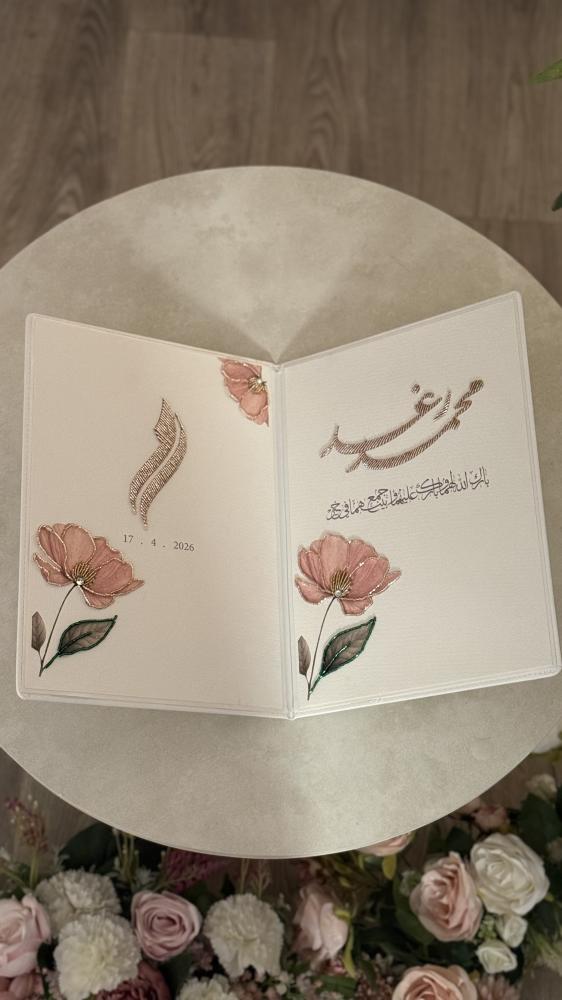 محمد رغد
بارك الله لهما وبارك عليهما وجمع بينهما في خير
17 . 4 . 2026